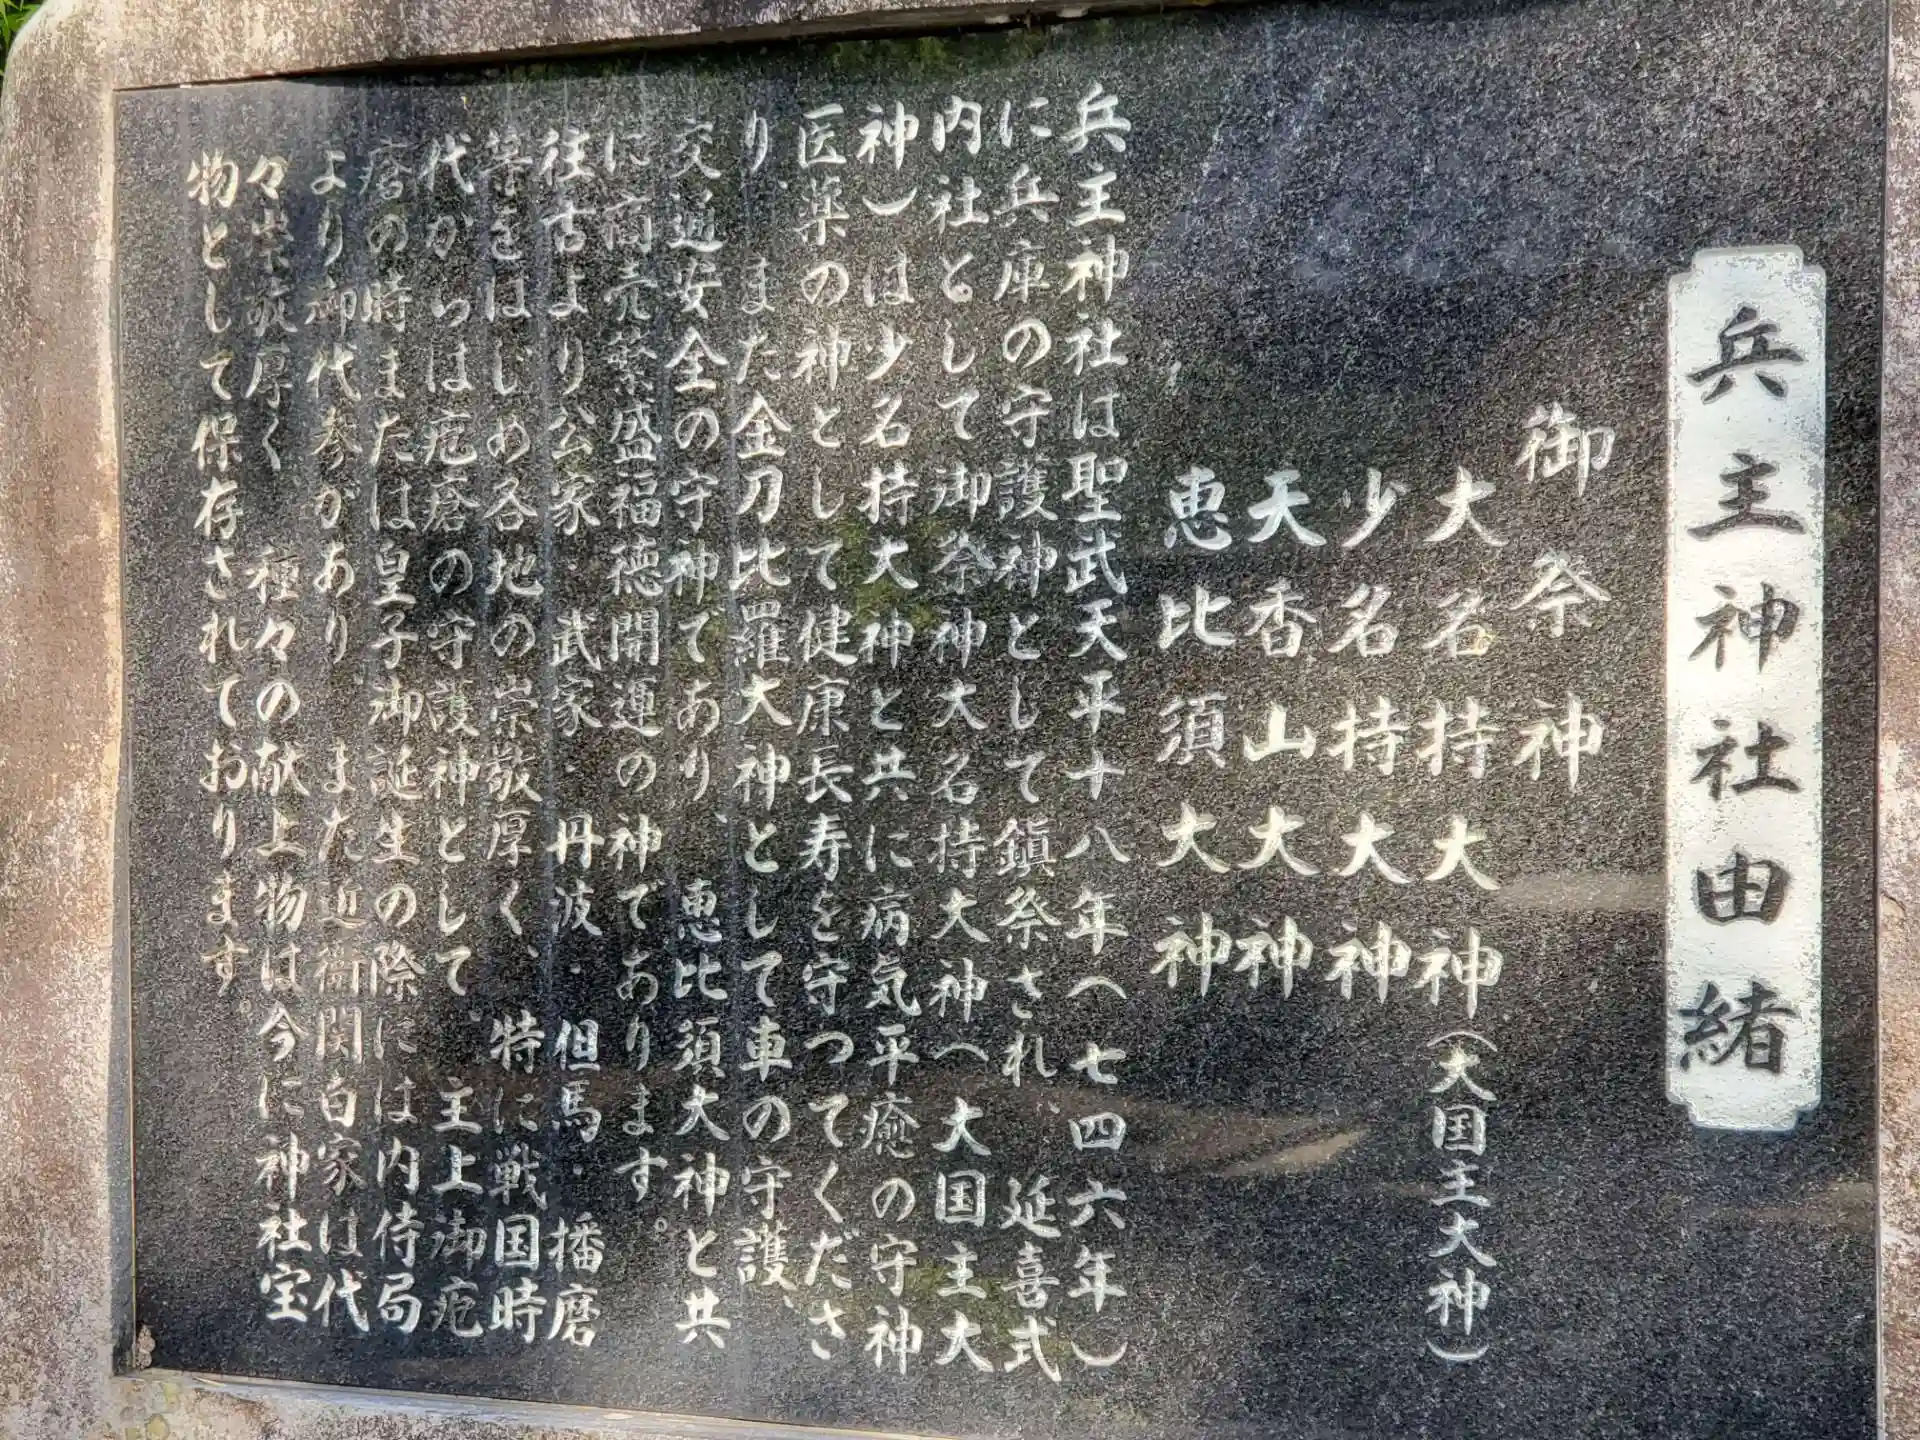 兵主神社由緒
御祭神
大名持大神(大国主大神)
少名持大神
天香山大神
恵比須大神
兵主神社は聖武天平十八年(七四六年)
に兵庫の守護神として鎮祭され、延喜式
内社として御祭神大名持大神(大国主大
神)は少名持大神と共に病気平癒の守神
医薬の神として健康長寿を守つてくださ
り、また金刀比羅大神、として車の守護、
交通安全の守神であり、恵比須大神と共
に商売繁盛福徳開運の神であります。
往古より公家・武家・丹波・但馬・播磨
等をはじめ各地の崇敬厚く、特に戦国時
代からは疱瘡の守護神として。主上御疱
瘡の時または皇子御誕生の際には内侍局
より御代参があり また近衛関白家は代
々崇敬厚く 種々の献上物は今に神社宝
物として保存されております。